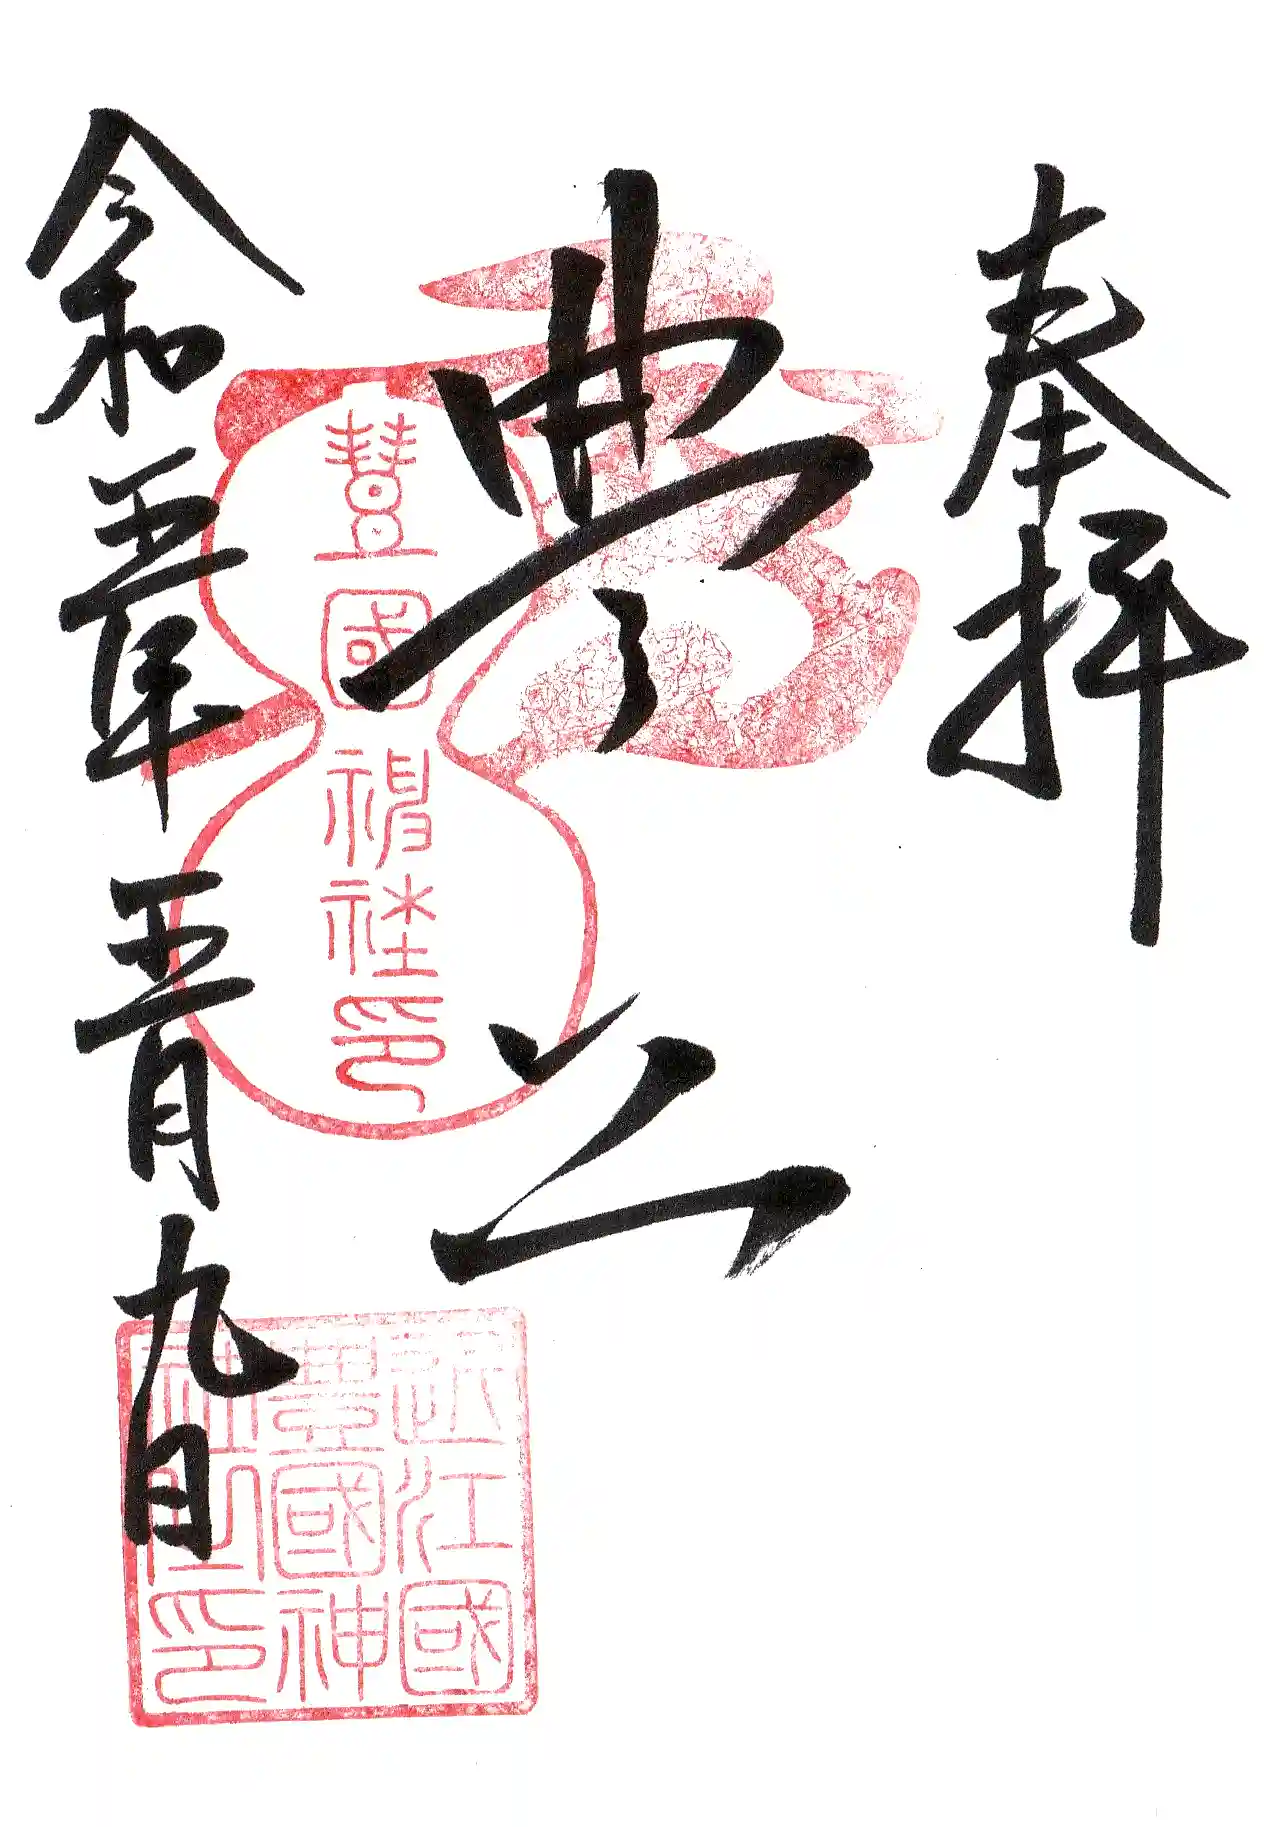 奉拝
豊公
豐國神社印
近江國
豐國神
社之印
令和五年五月九日